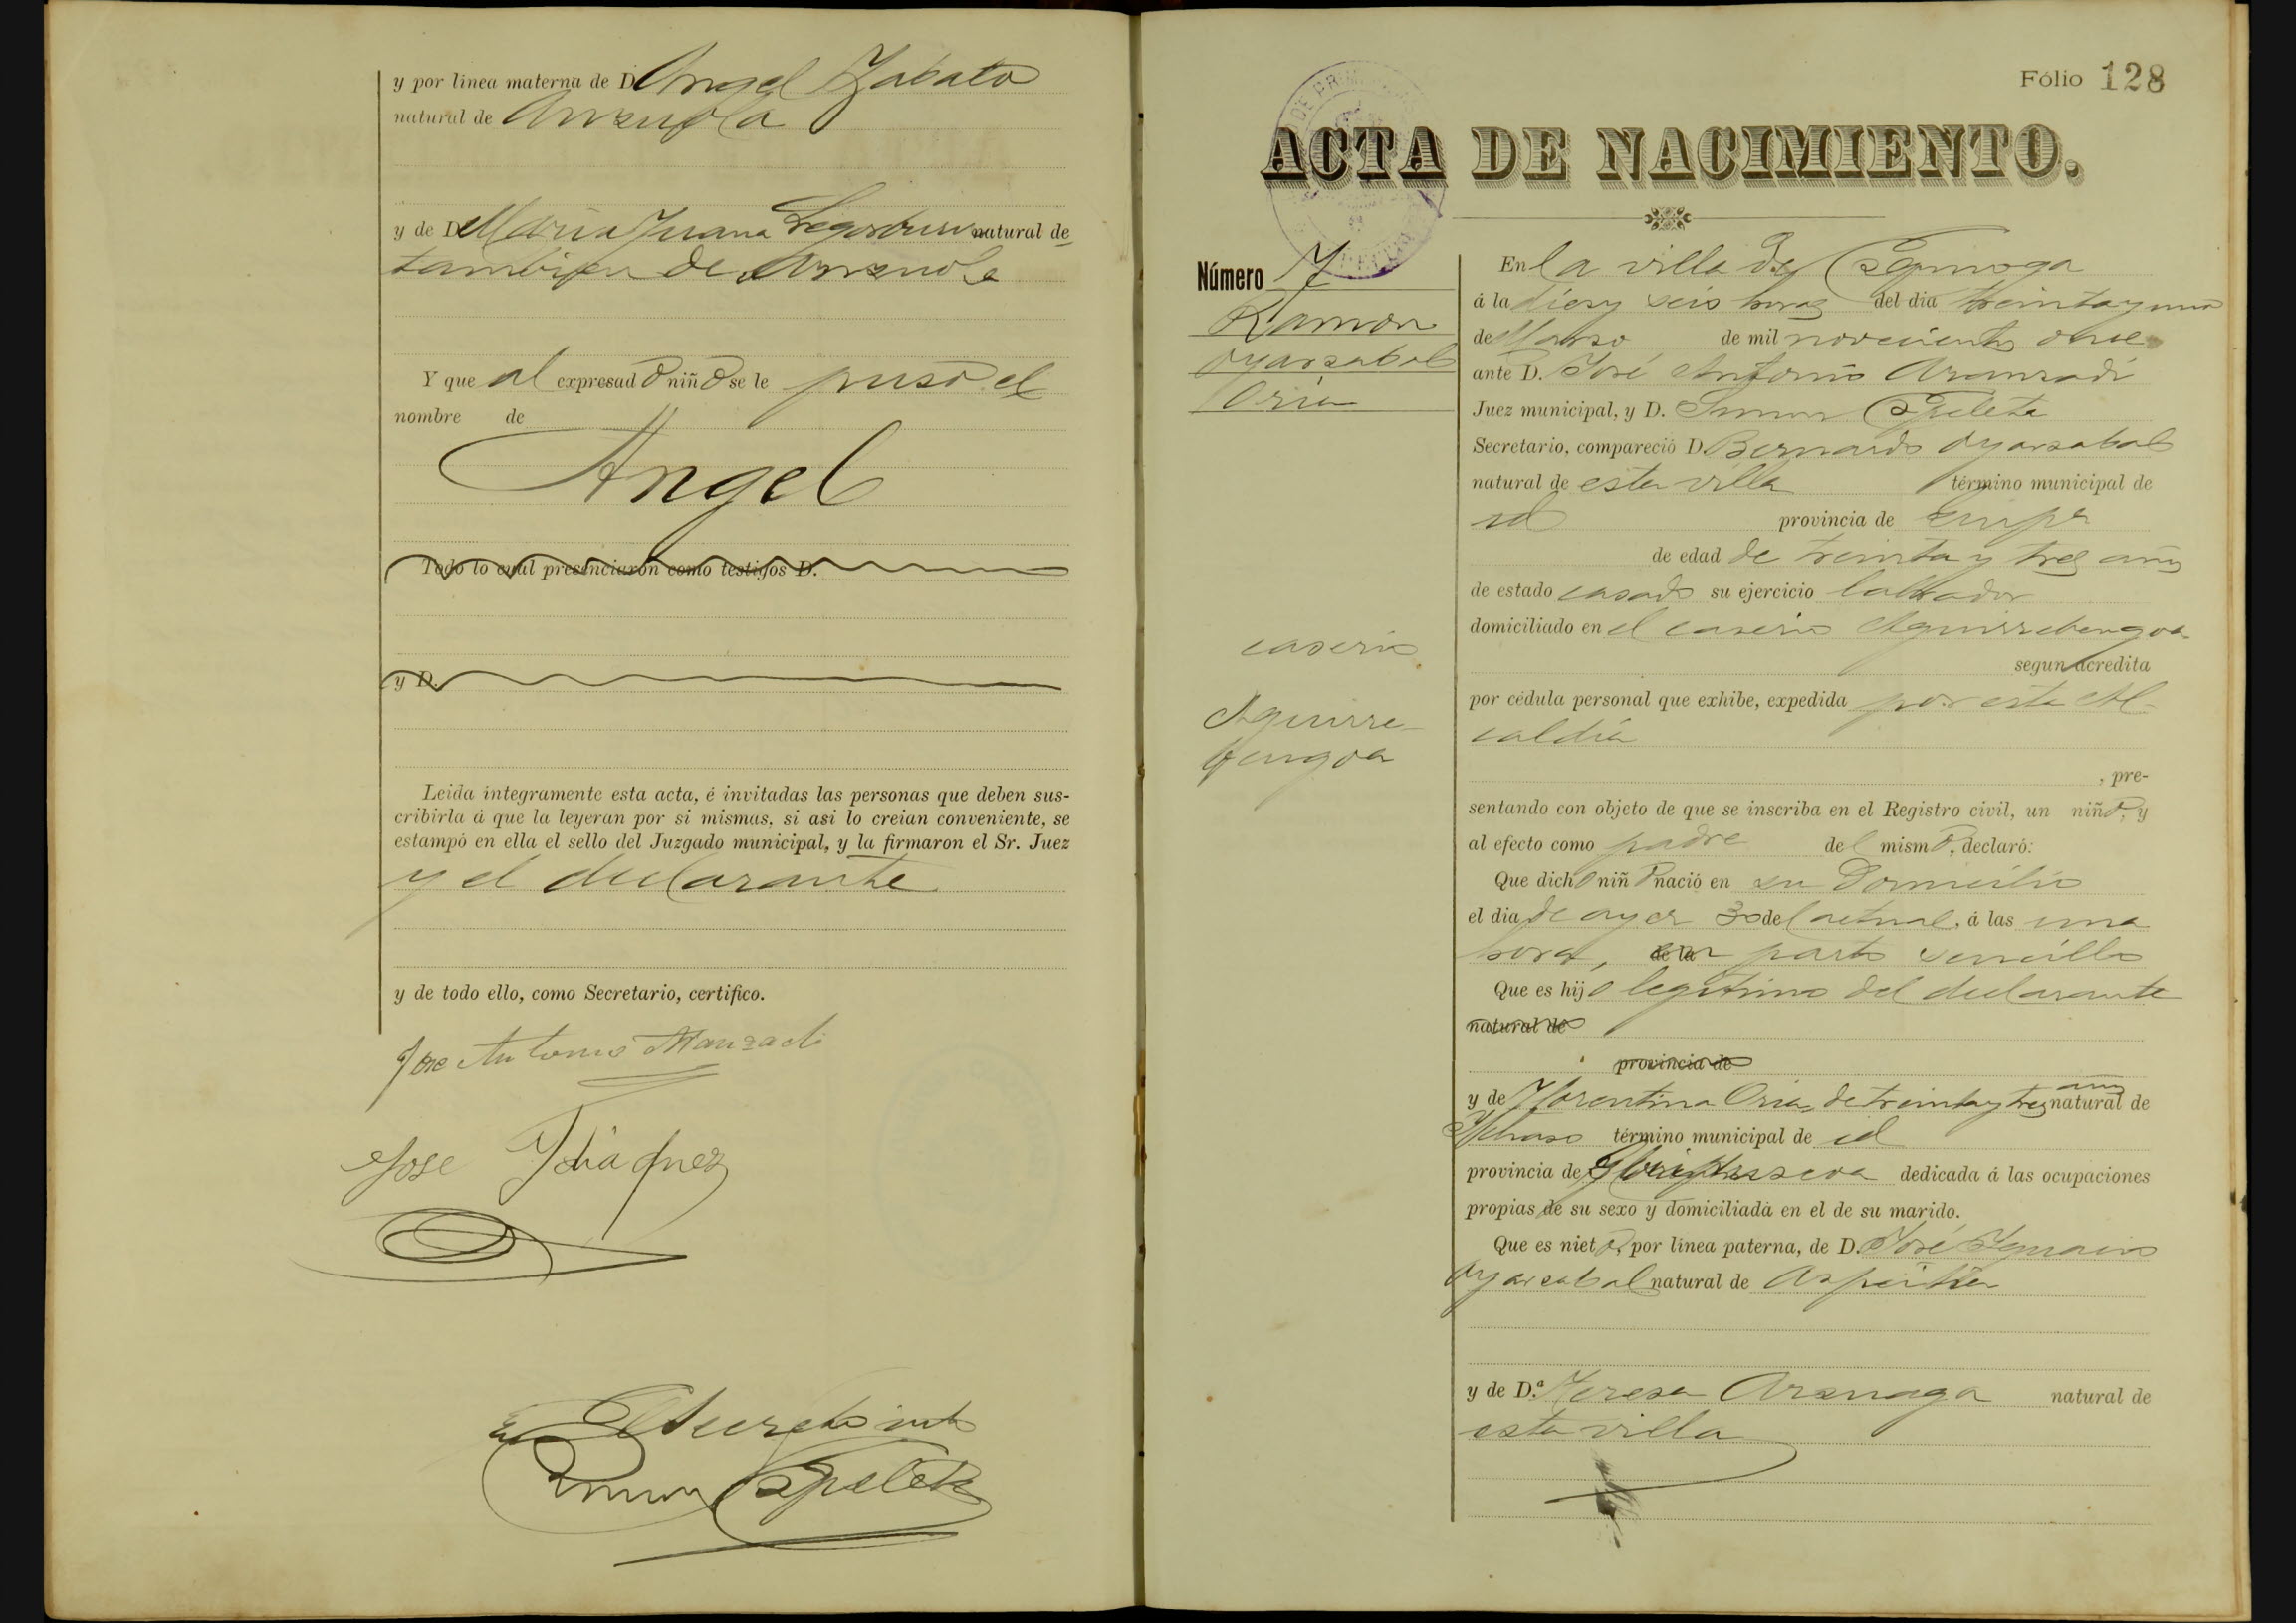 y por línea materna de D. Angel Zabalo
natural de Anzuola
y de D. Maria Juana Legorburu natural de
tambien de Anzuola
Y que al expresado niño se le puso el
nombre de
Angel
Todo lo cual presenciaron como testigos D.
y D.
Leida íntegramente esta acta, é invitadas las personas que deben sus-
cribirla á que la leyeran por si mismas, si asi lo creian conveniente, se
estampó en ella el sello del Juzgado municipal, y la firmaron el Sr. Juez
y el declarante
y de todo ello, como Secretario, certifico.
Jose Antonio Aranzadi
Jose Idiaquez
El Secreto into
Simon Espeleta
Fólio 128
ACTA DE NACIMIENTO.
Número 7
Ramon
Oyarzabal
Oria
caserio
Aguirre-
bengoa
En la villa de Ezquioga
á la diez y seis horas del dia treinta y uno
de Marzo de mil novecientos once
ante D. José Antonio Aranzadi
Juez municipal, y D. Simon Espeleta
Secretario, compareció D. Bernardo Oyarzabal
natural de esta villa término municipal de
id provincia de Guipa
de edad de treinta y tres años
de estado casado su ejercicio labrador
domiciliado en el caserio Aguirrebengoa
segun acredita
por cédula personal que exhibe, expedida por esta Al-
caldia
, pre-
sentando con objeto de que se inscriba en el Registro civil, un niño, y
al efecto como padre del mismo, declaró:
Que dicho niño nació en su domicilio
el dia de ayer 30 del actual, á las una
hora, de la en parto sencillo
Que es hijo legitimo del declarante
natural de
provincia de
y de Florentina Oria, de treinta y tres años natural de
Ichaso término municipal de id
provincia de Guipuzcoa dedicada á las ocupaciones
propias de su sexo y domiciliada en el de su marido.
Que es nieto, por línea paterna, de D. José Ignacio
Oyarzabal natural de Azpeitia
y de D.ª Teresa Aranaga natural de
esta villa